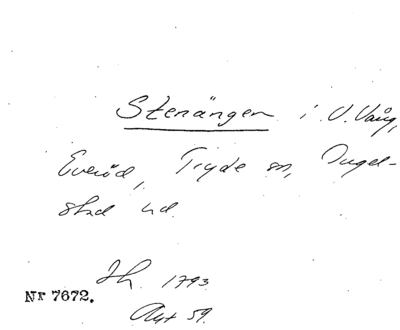 Stenängen i V. Vång,
Everöd, Tryde sn, Ingel-
stad hd.
Jh. 1793
Nr 7672.
Akt 59.